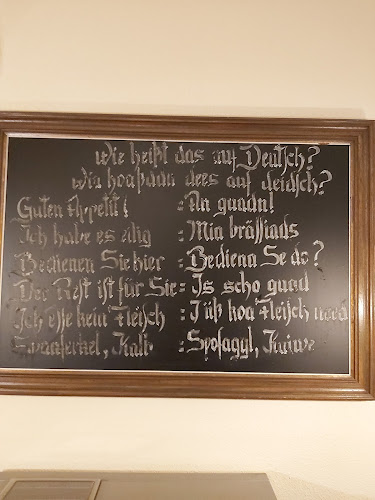 Wie heißt das auf Deutsch?
Wia hoaßdn dees auf deidsch?
Guten Appetit! : An guadn!
Ich habe es eilig : Mia brässiads
Bedienen Sie hier : Bediena Se do?
Der Rest ist für Sie : Is scho guad
Ich esse kein Fleisch : I iß koa Fleisch
Spanferkel, Kalb : Spofagyl,